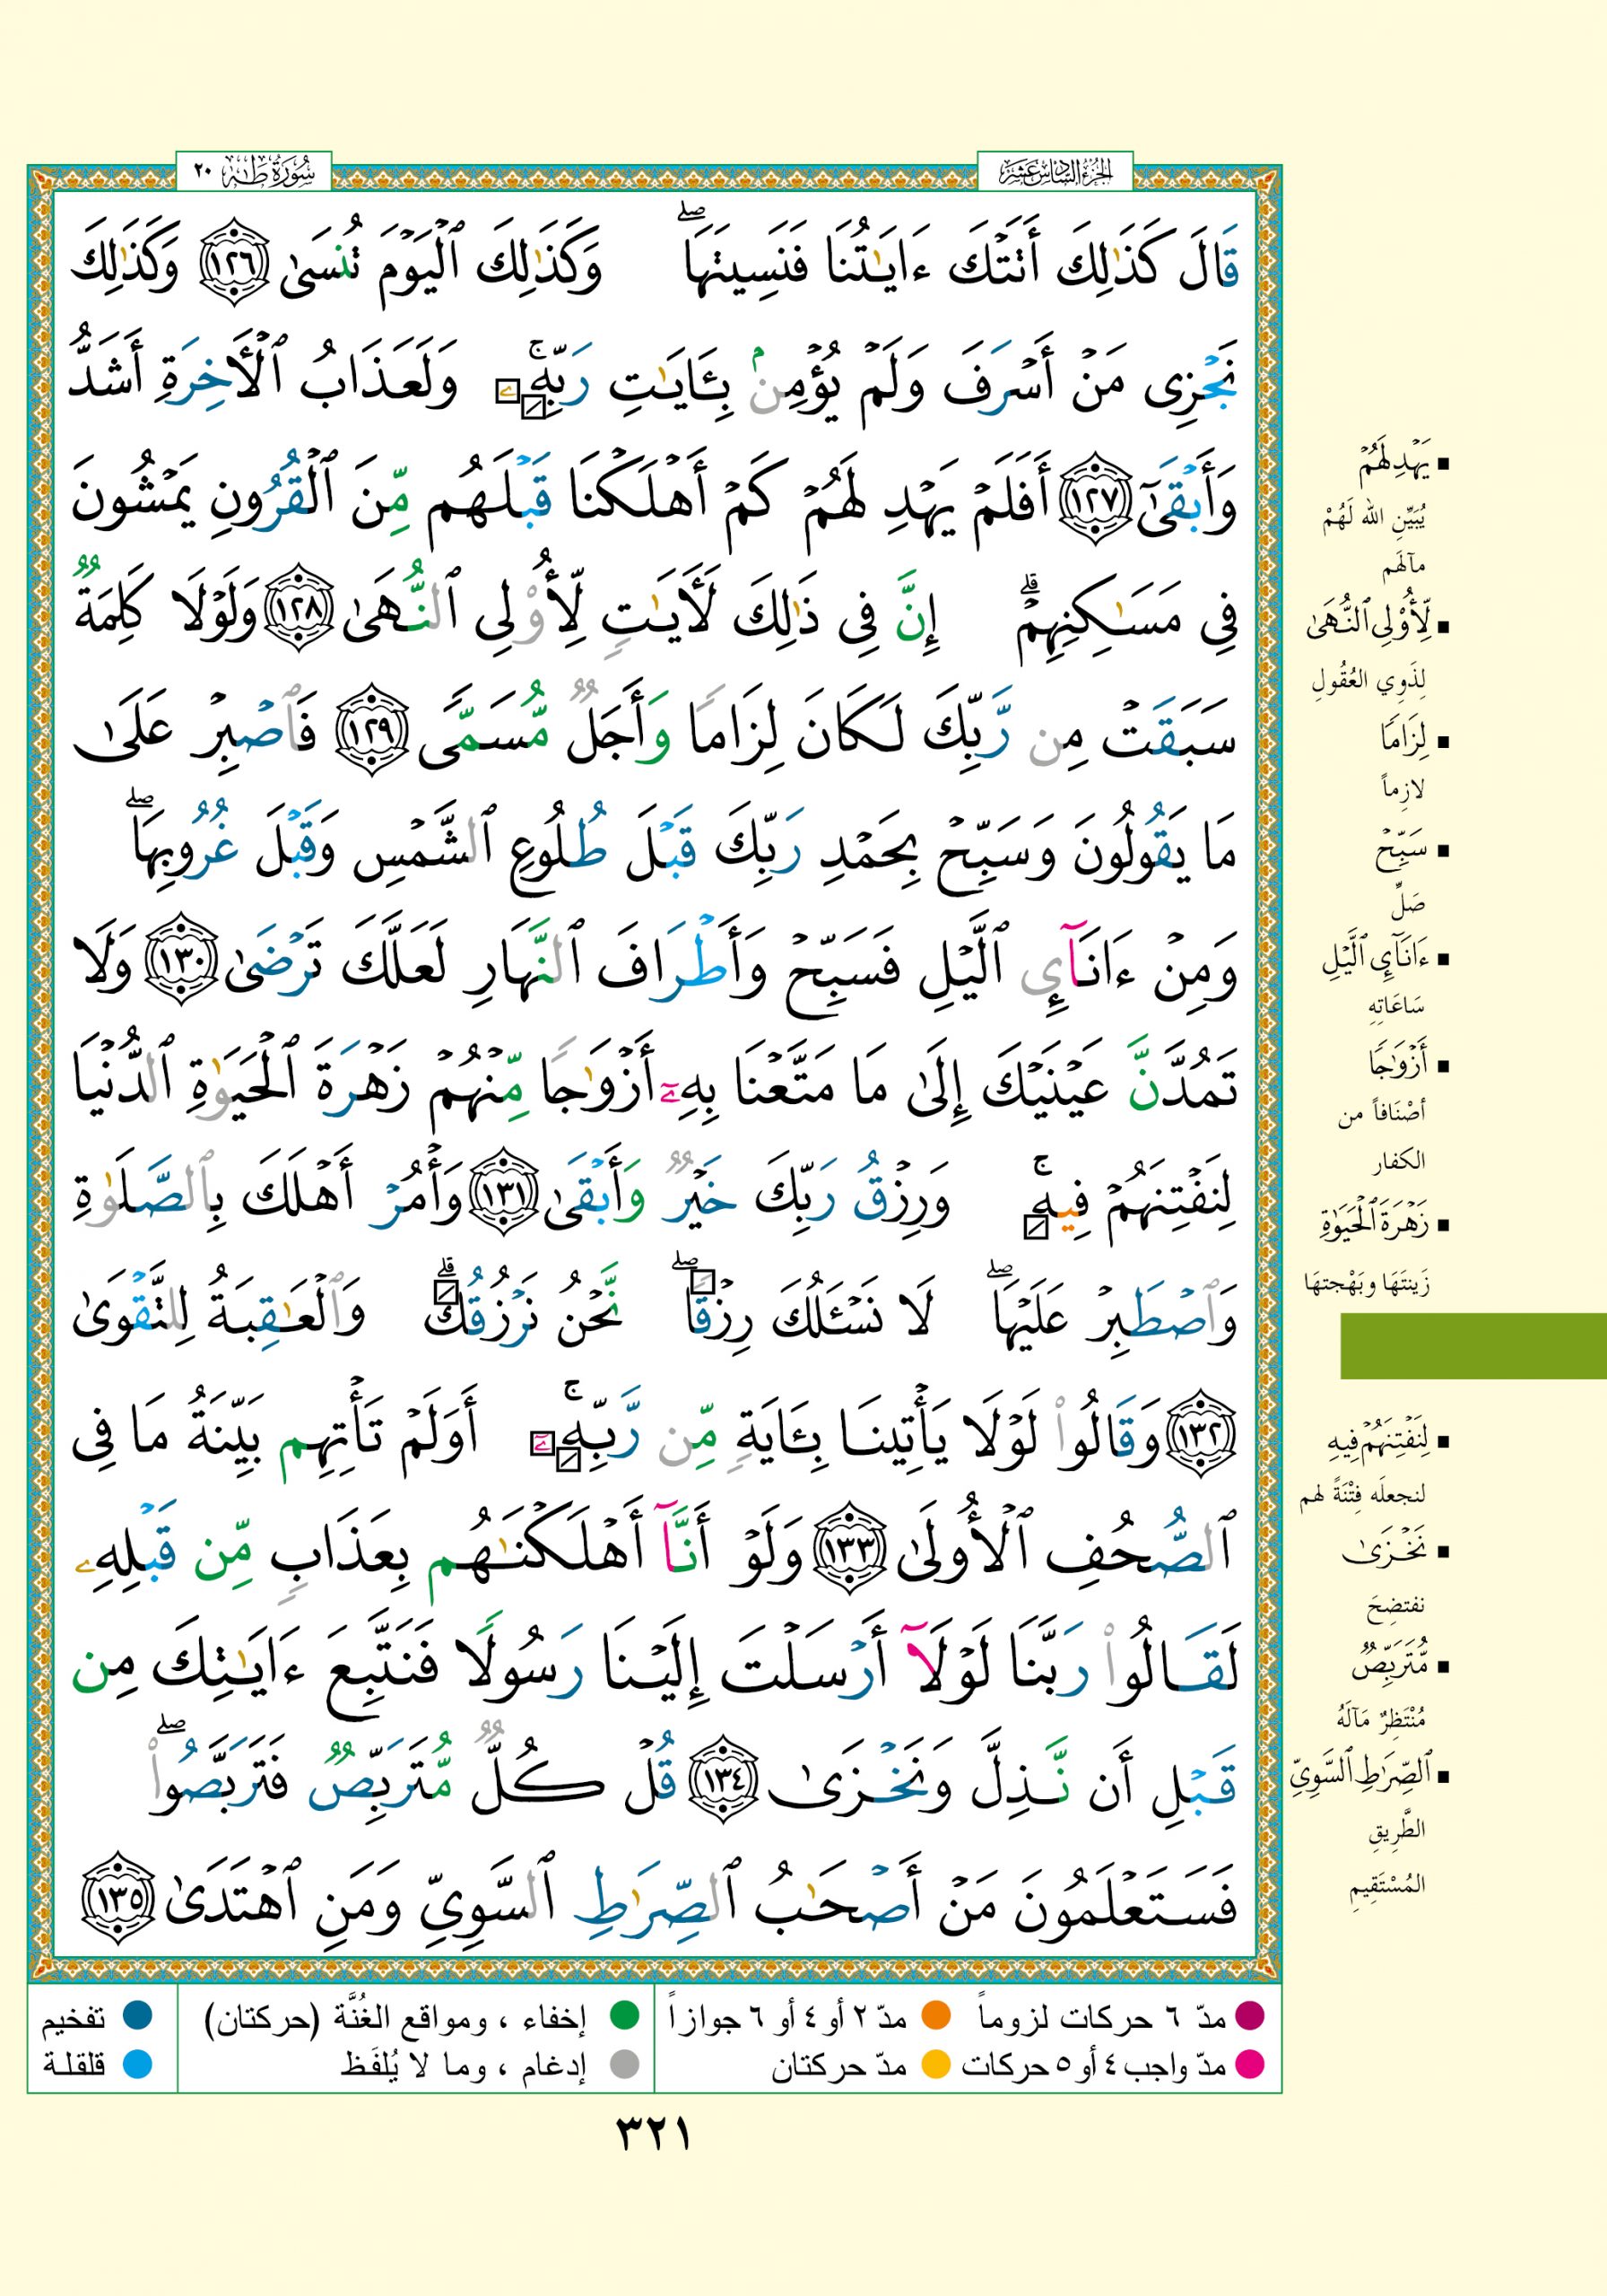 الجزء السادس عشر
سورة طه ٢٠
قَالَ كَذَٰلِكَ أَتَتْكَ ءَايَٰتُنَا فَنَسِيتَهَا ۖ وَكَذَٰلِكَ ٱلْيَوْمَ تُنسَىٰ ١٢٦ وَكَذَٰلِكَ
نَجْزِى مَنْ أَسْرَفَ وَلَمْ يُؤْمِنۢ بِـَٔايَٰتِ رَبِّهِۦ ۚ وَلَعَذَابُ ٱلْأَخِرَةِ أَشَدُّ
وَأَبْقَىٰٓ ١٢٧ أَفَلَمْ يَهْدِ لَهُمْ كَمْ أَهْلَكْنَا قَبْلَهُم مِّنَ ٱلْقُرُونِ يَمْشُونَ
فِى مَسَٰكِنِهِمْ ۗ إِنَّ فِى ذَٰلِكَ لَأَيَٰتٍ لِّأُوْلِى ٱلنُّهَىٰ ١٢٨ وَلَوْلَا كَلِمَةٌ
سَبَقَتْ مِن رَّبِّكَ لَكَانَ لِزَامًا وَأَجَلٌ مُّسَمًّى ١٢٩ فَٱصْبِرْ عَلَىٰ
مَا يَقُولُونَ وَسَبِّحْ بِحَمْدِ رَبِّكَ قَبْلَ طُلُوعِ ٱلشَّمْسِ وَقَبْلَ غُرُوبِهَا ۖ
وَمِنْ ءَانَآئِ ٱلَّيْلِ فَسَبِّحْ وَأَطْرَافَ ٱلنَّهَارِ لَعَلَّكَ تَرْضَىٰ ١٣٠ وَلَا
تَمُدَّنَّ عَيْنَيْكَ إِلَىٰ مَا مَتَّعْنَا بِهِۦٓ أَزْوَٰجًا مِّنْهُمْ زَهْرَةَ ٱلْحَيَوٰةِ ٱلدُّنْيَا
لِنَفْتِنَهُمْ فِيهِ ۚ وَرِزْقُ رَبِّكَ خَيْرٌ وَأَبْقَىٰ ١٣١ وَأْمُرْ أَهْلَكَ بِٱلصَّلَوٰةِ
وَٱصْطَبِرْ عَلَيْهَا ۖ لَا نَسْـَٔلُكَ رِزْقًا ۖ نَّحْنُ نَرْزُقُكَ ۗ وَٱلْعَٰقِبَةُ لِلتَّقْوَىٰ
١٣٢ وَقَالُوا۟ لَوْلَا يَأْتِينَا بِـَٔايَةٍ مِّن رَّبِّهِۦٓ ۚ أَوَلَمْ تَأْتِهِم بَيِّنَةُ مَا فِى
ٱلصُّحُفِ ٱلْأُولَىٰ ١٣٣ وَلَوْ أَنَّآ أَهْلَكْنَٰهُم بِعَذَابٍ مِّن قَبْلِهِۦ
لَقَالُوا۟ رَبَّنَا لَوْلَآ أَرْسَلْتَ إِلَيْنَا رَسُولًا فَنَتَّبِعَ ءَايَٰتِكَ مِن
قَبْلِ أَن نَّذِلَّ وَنَخْزَىٰ ١٣٤ قُلْ كُلٌّ مُّتَرَبِّصٌ فَتَرَبَّصُوا۟ ۖ
فَسَتَعْلَمُونَ مَنْ أَصْحَٰبُ ٱلصِّرَٰطِ ٱلسَّوِىِّ وَمَنِ ٱهْتَدَىٰ ١٣٥
▪ يَهْدِ لَهُمْ
يُبَيِّنِ الله لَهُمْ
مآلَهم
▪ لِّأُوْلِى ٱلنُّهَىٰ
لِذَوِي العُقُولِ
▪ لِزَامًا
لازِماً
▪ سَبِّحْ
صَلِّ
▪ ءَانَآئِ ٱلَّيْلِ
سَاعَاتِهِ
▪ أَزْوَٰجًا
أصْنَافاً من
الكفار
▪ زَهْرَةَ ٱلْحَيَوٰةِ
زَينتَهَا وبَهْجتهَا
▪ لِنَفْتِنَهُمْ فِيهِ
لنجعلَه فِتْنَةً لهم
▪ نَخْزَىٰ
نفتضِحَ
▪ مُّتَرَبِّصٌ
مُنْتَظِرٌ مَآلَهُ
▪ ٱلصِّرَٰطِ ٱلسَّوِىِّ
الطَّرِيقِ
المُسْتَقِيمِ
مدّ ٦ حركات لزوماً مدّ ٢ أو ٤ أو ٦ جوازاً إخفاء ، ومواقع الغُنَّة (حركتان) تفخيم
مدّ واجب ٤ أو ٥ حركات مدّ حركتان إدغام ، وما لا يُلفَظ قلقلة
٣٢١